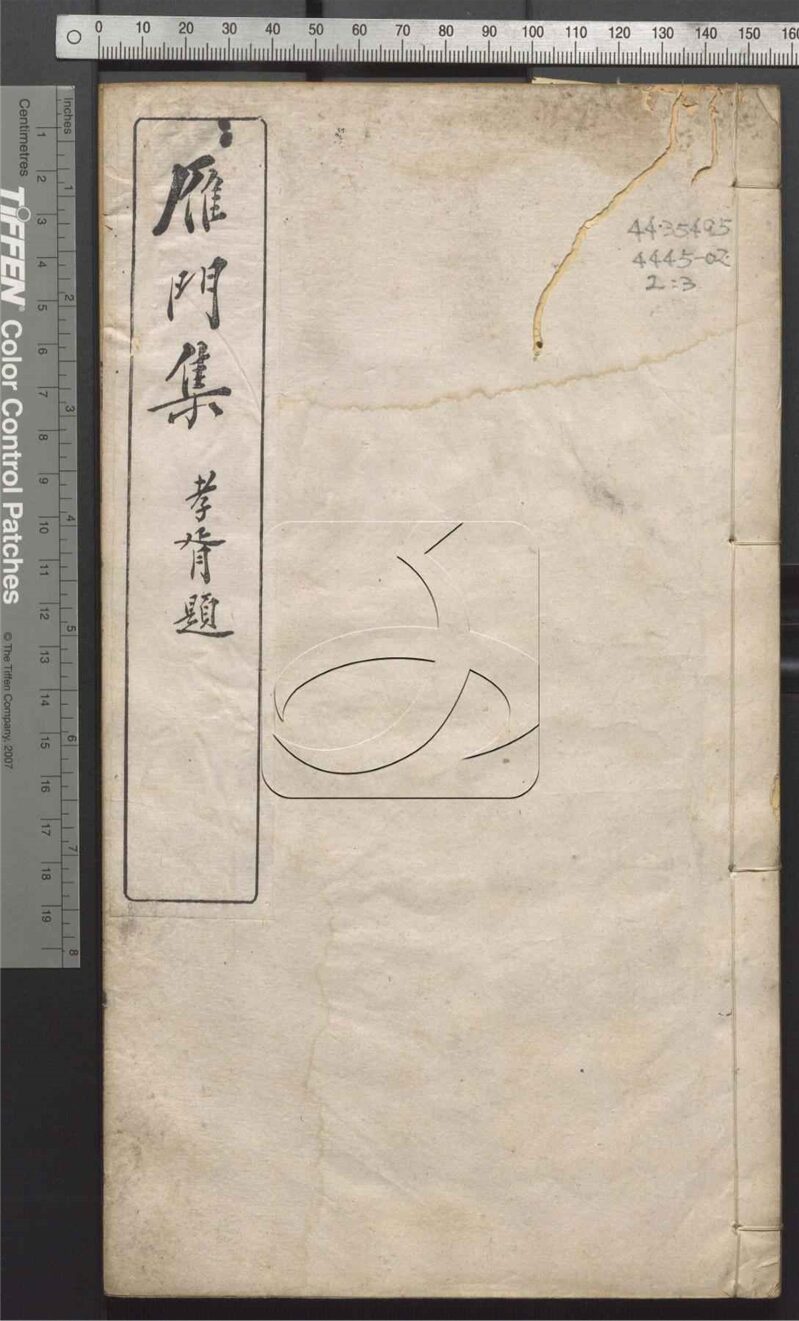 0 10 20 30 40 50 60 70 80 90 100 110 120 130 140 150 160
雁門集
孝胥題
4435495
4445-02
2:3
Inches
1 2 3 4 5 6 7 8
Centimetres
1 2 3 4 5 6 7 8 9 10 11 12 13 14 15 16 17 18 19
TIFFEN® Color Control Patches
© The Tiffen Company, 2007